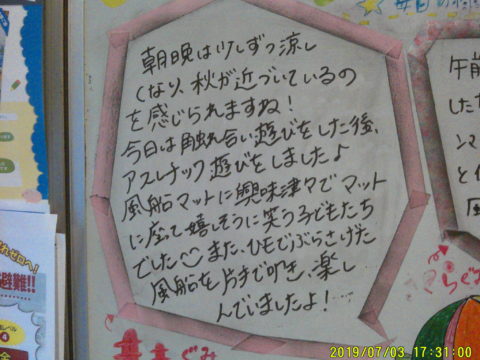 毎日の様
朝晩は少しずつ涼し
くなり、秋が近づいているの
を感じられますね！
今日は触れ合い遊びをした後、
アスレチック遊びをしましたよ
風船マットに興味津々でマット
に座って嬉しそうに笑う子どもたち
でした また、ひもでぶらさげた
風船を片手で叩き、楽し
んでいましたよ！
午前
した
ンマ
と
風
れゼロへ！
避難!!
4
ぐみ
らぐみ
2019/07/03 17:31:00